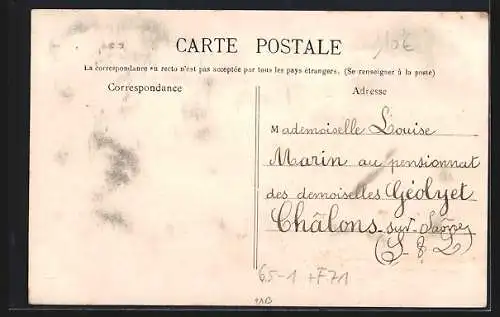 10€
CARTE POSTALE
La correspondance au recto n'est pas acceptée par tous les pays étrangers. (Se renseigner à la poste)
Correspondance
Adresse
Mademoiselle Louise
Marin au pensionnat
des demoiselles Géolyet
Châlons-sur-Saône
(S-&-L)
65-1 + F71